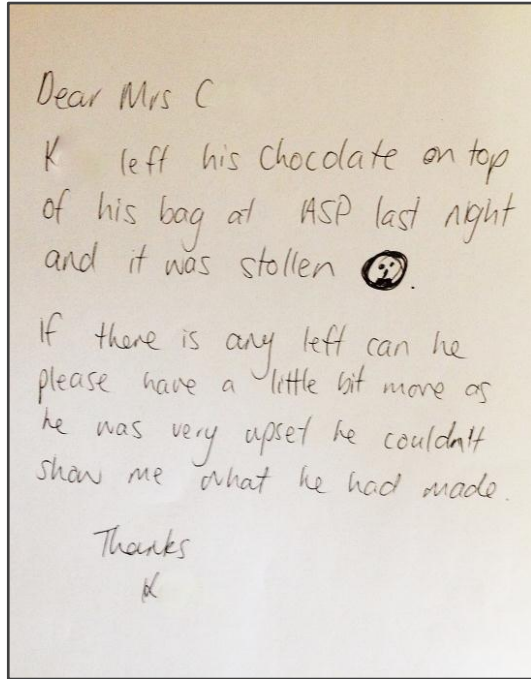 Dear Mrs C
K left his chocolate on top
of his bag at ASP last night
and it was stollen .
If there is any left can he
please have a little bit more as
he was very upset he couldn't
show me what he had made.
Thanks
K